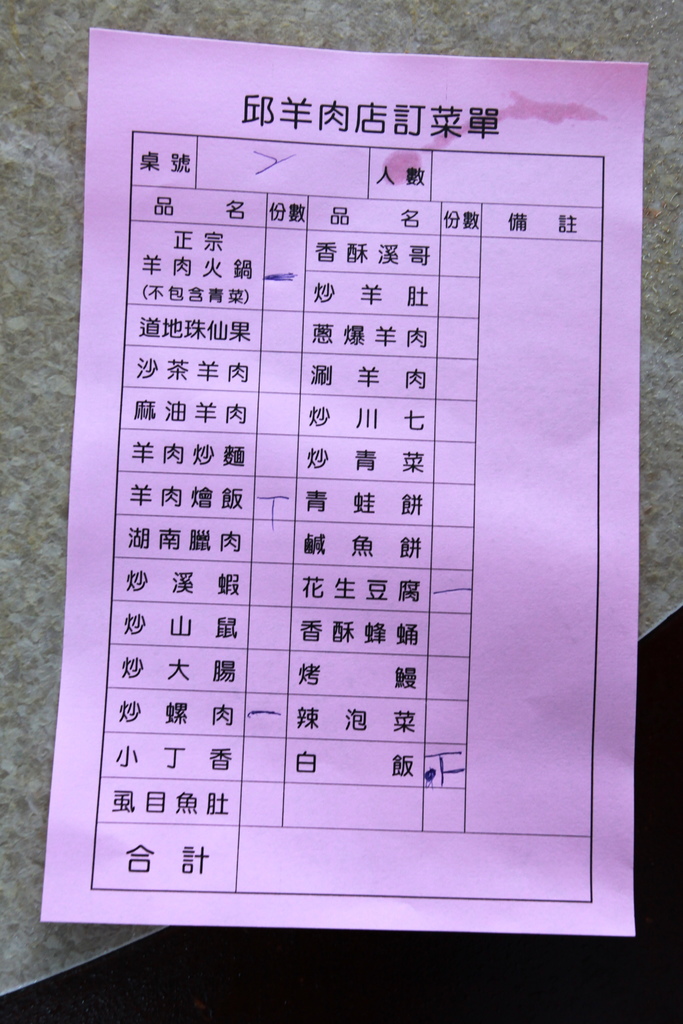 邱羊肉店訂菜單
桌號 人數
品名 份數 品名 份數 備註
正宗
羊肉火鍋 一 香酥溪哥
(不包含青菜) 炒羊肚
道地珠仙果 蔥爆羊肉
沙茶羊肉 涮羊肉
麻油羊肉 炒川七
羊肉炒麵 炒青菜
羊肉燴飯 丅 青蛙餅
湖南臘肉 鹹魚餅
炒溪蝦 花生豆腐 一
炒山鼠 香酥蜂蛹
炒大腸 烤鰻
炒螺肉 一 辣泡菜
小丁香 白飯
虱目魚肚
合計